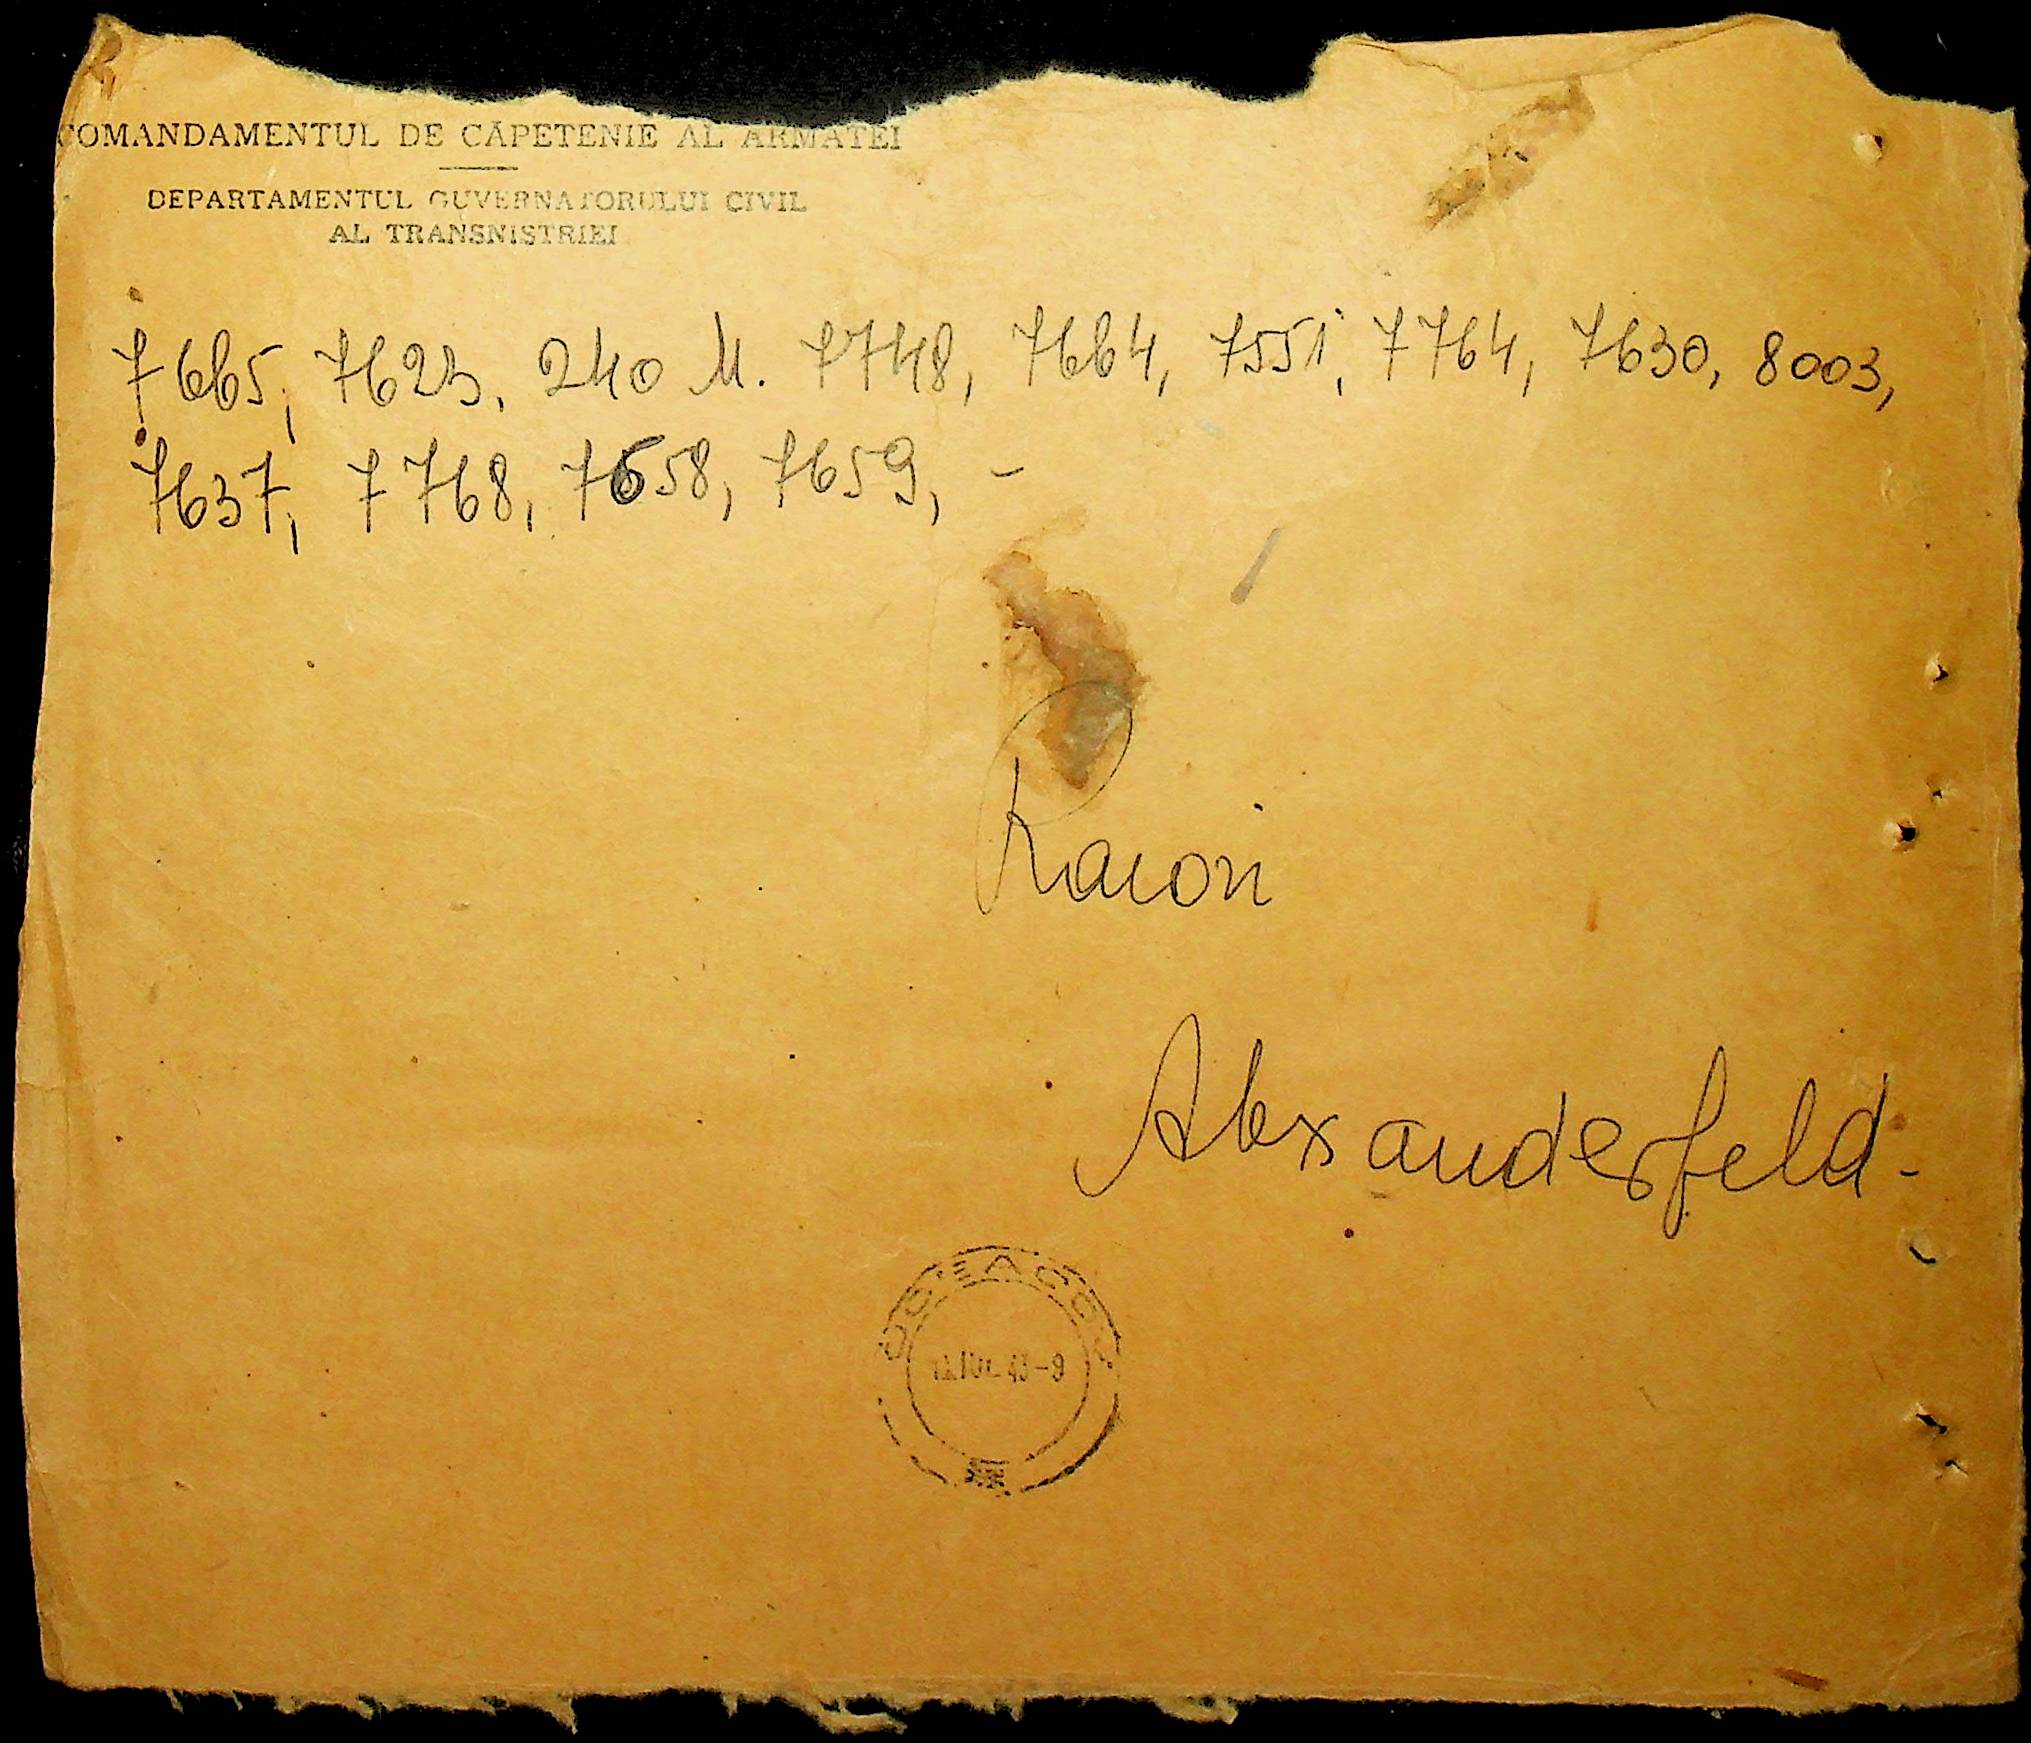 COMANDAMENTUL DE CĂPETENIE AL ARMATEI
DEPARTAMENTUL GUVERNATORULUI CIVIL
AL TRANSNISTRIEI
7665, 7623, 240 M. 7748, 7664, 7551, 7764, 7630, 8003,
7637, 7768, 7658, 7659, -
Raion
Alexanderfeld -
IUL. 43-9